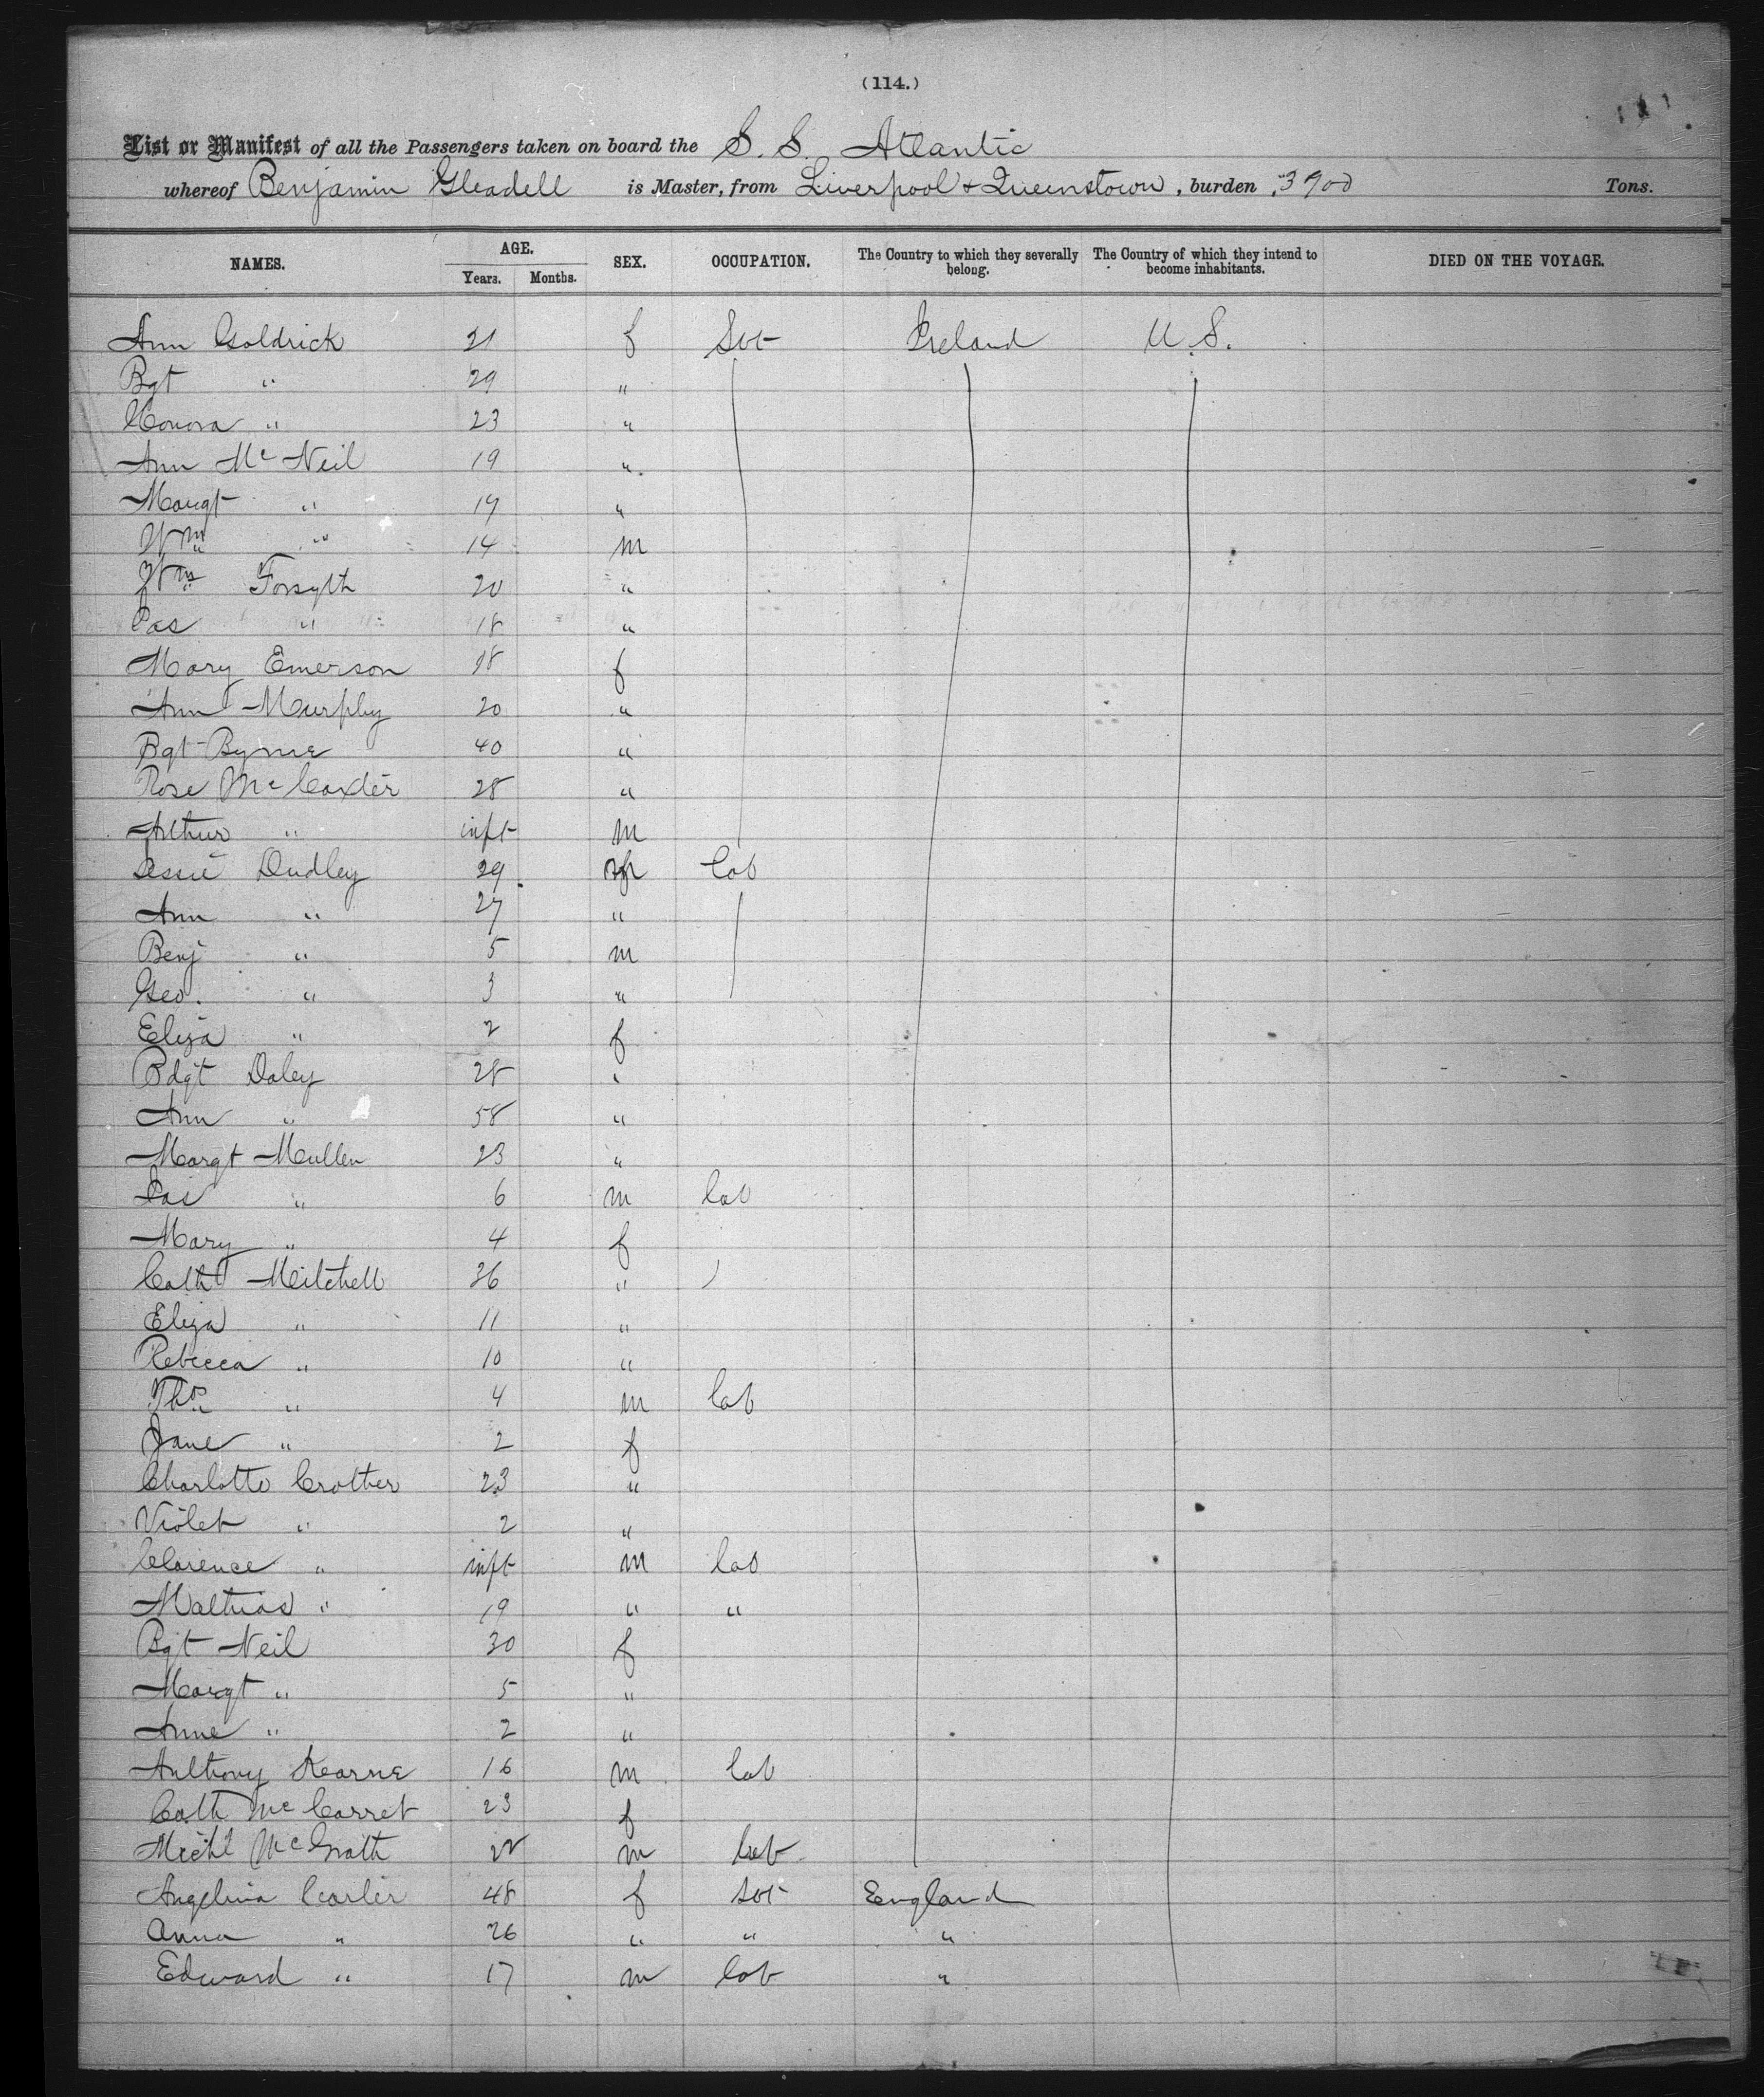 (114.)
List or Manifest of all the Passengers taken on board the S. S. Atlantic
whereof Benjamin Gleadell is Master, from Liverpool + Queenstown, burden 3900 Tons.
NAMES. AGE. Years. Months. SEX. OCCUPATION. The Country to which they severally belong. The Country of which they intend to become inhabitants. DIED ON THE VOYAGE.
Ann Goldrick 21 f Svt Ireland U.S.
Bgt " 29 "
Honora " 23 "
Ann Mc Neil 19 "
Margt " 17 "
Wm " 14 m
Wm Forsyth 20 "
Jas " 18 "
Mary Emerson 18 f
Ann Murphy 20 "
Bgt Byrne 40 "
Rose Mc 28 "
Arthur " inft m
Jessie Dudley 29 lab
Ann " 27 "
Benj " 5 m
Geo. " 3 "
Eliza " 2 f
Bdgt Daley 28 "
Ann " 58 "
Margt Mullen 23 "
Jas " 6 m lab
Mary " 4 f
Cath Mitchell 36 "
Eliza " 11 "
Rebecca " 10 "
Thos " 4 m lab
Jane " 2 f
Charlotte Crother 23 "
Violet " 2 "
Clarence " inft m lab
Mathias " 19 " "
Bgt Neil 30 f
Margt " 5 "
Anne " 2 "
Anthony Kearne 16 m lab
Cath Mc Carret 23 f
Michl McGrath m lab
Angelina Carter 48 f svt England
Anna " 26 " " "
Edward " 17 m lab "